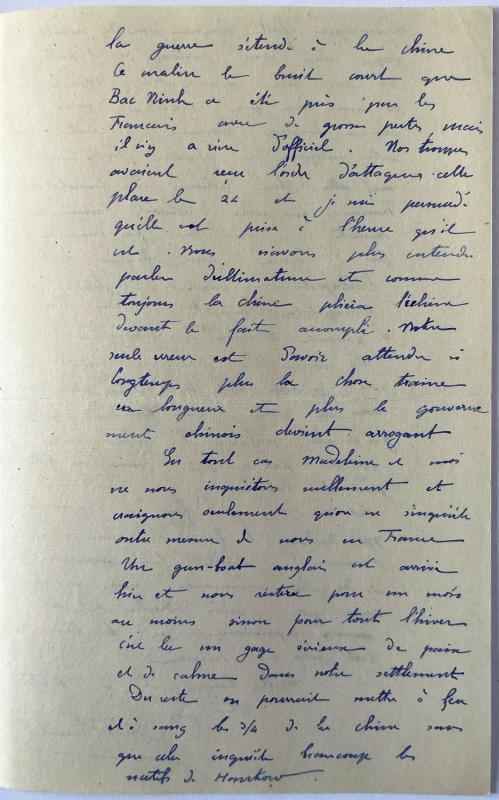 la guerre s'étendi à la chine
Ce matin le bruit court que
Bac Ninh a été pris par les
Francais avec de grosses pertes, mais
il n'y a rien d'officiel. Nos troupes
avaient reçu l'ordre d'attaquer cette
place le 24 et je suis persuadé
qu'elle est prise à l'heure qu'il
est. Nous n'avons plus entendu
parler d'ultimatum et comme
toujours la chine pliera l'échine
devant le fait accompli. Notre
seule erreur est d'avoir attendu si
longtemps plus la chose traine
en longueur et plus le gouverne
ment chinois devient arrogant
En tout cas Madeleine et moi
ne nous inquiétons nullement et
craignons seulement qu'on ne s'inquiète
outre mesure de nous en France
Un gun-boat anglais est arrivé
hier et nous restera pour un mois
au moins sinon pour tout l'hiver
c'est là un gage sérieux de paix
et de calme dans notre settlement
Du reste on pourrait mettre à feu
et à sang les 3/4 de la chine sans
que cela inquiète beaucoup les
natifs de Hankow.